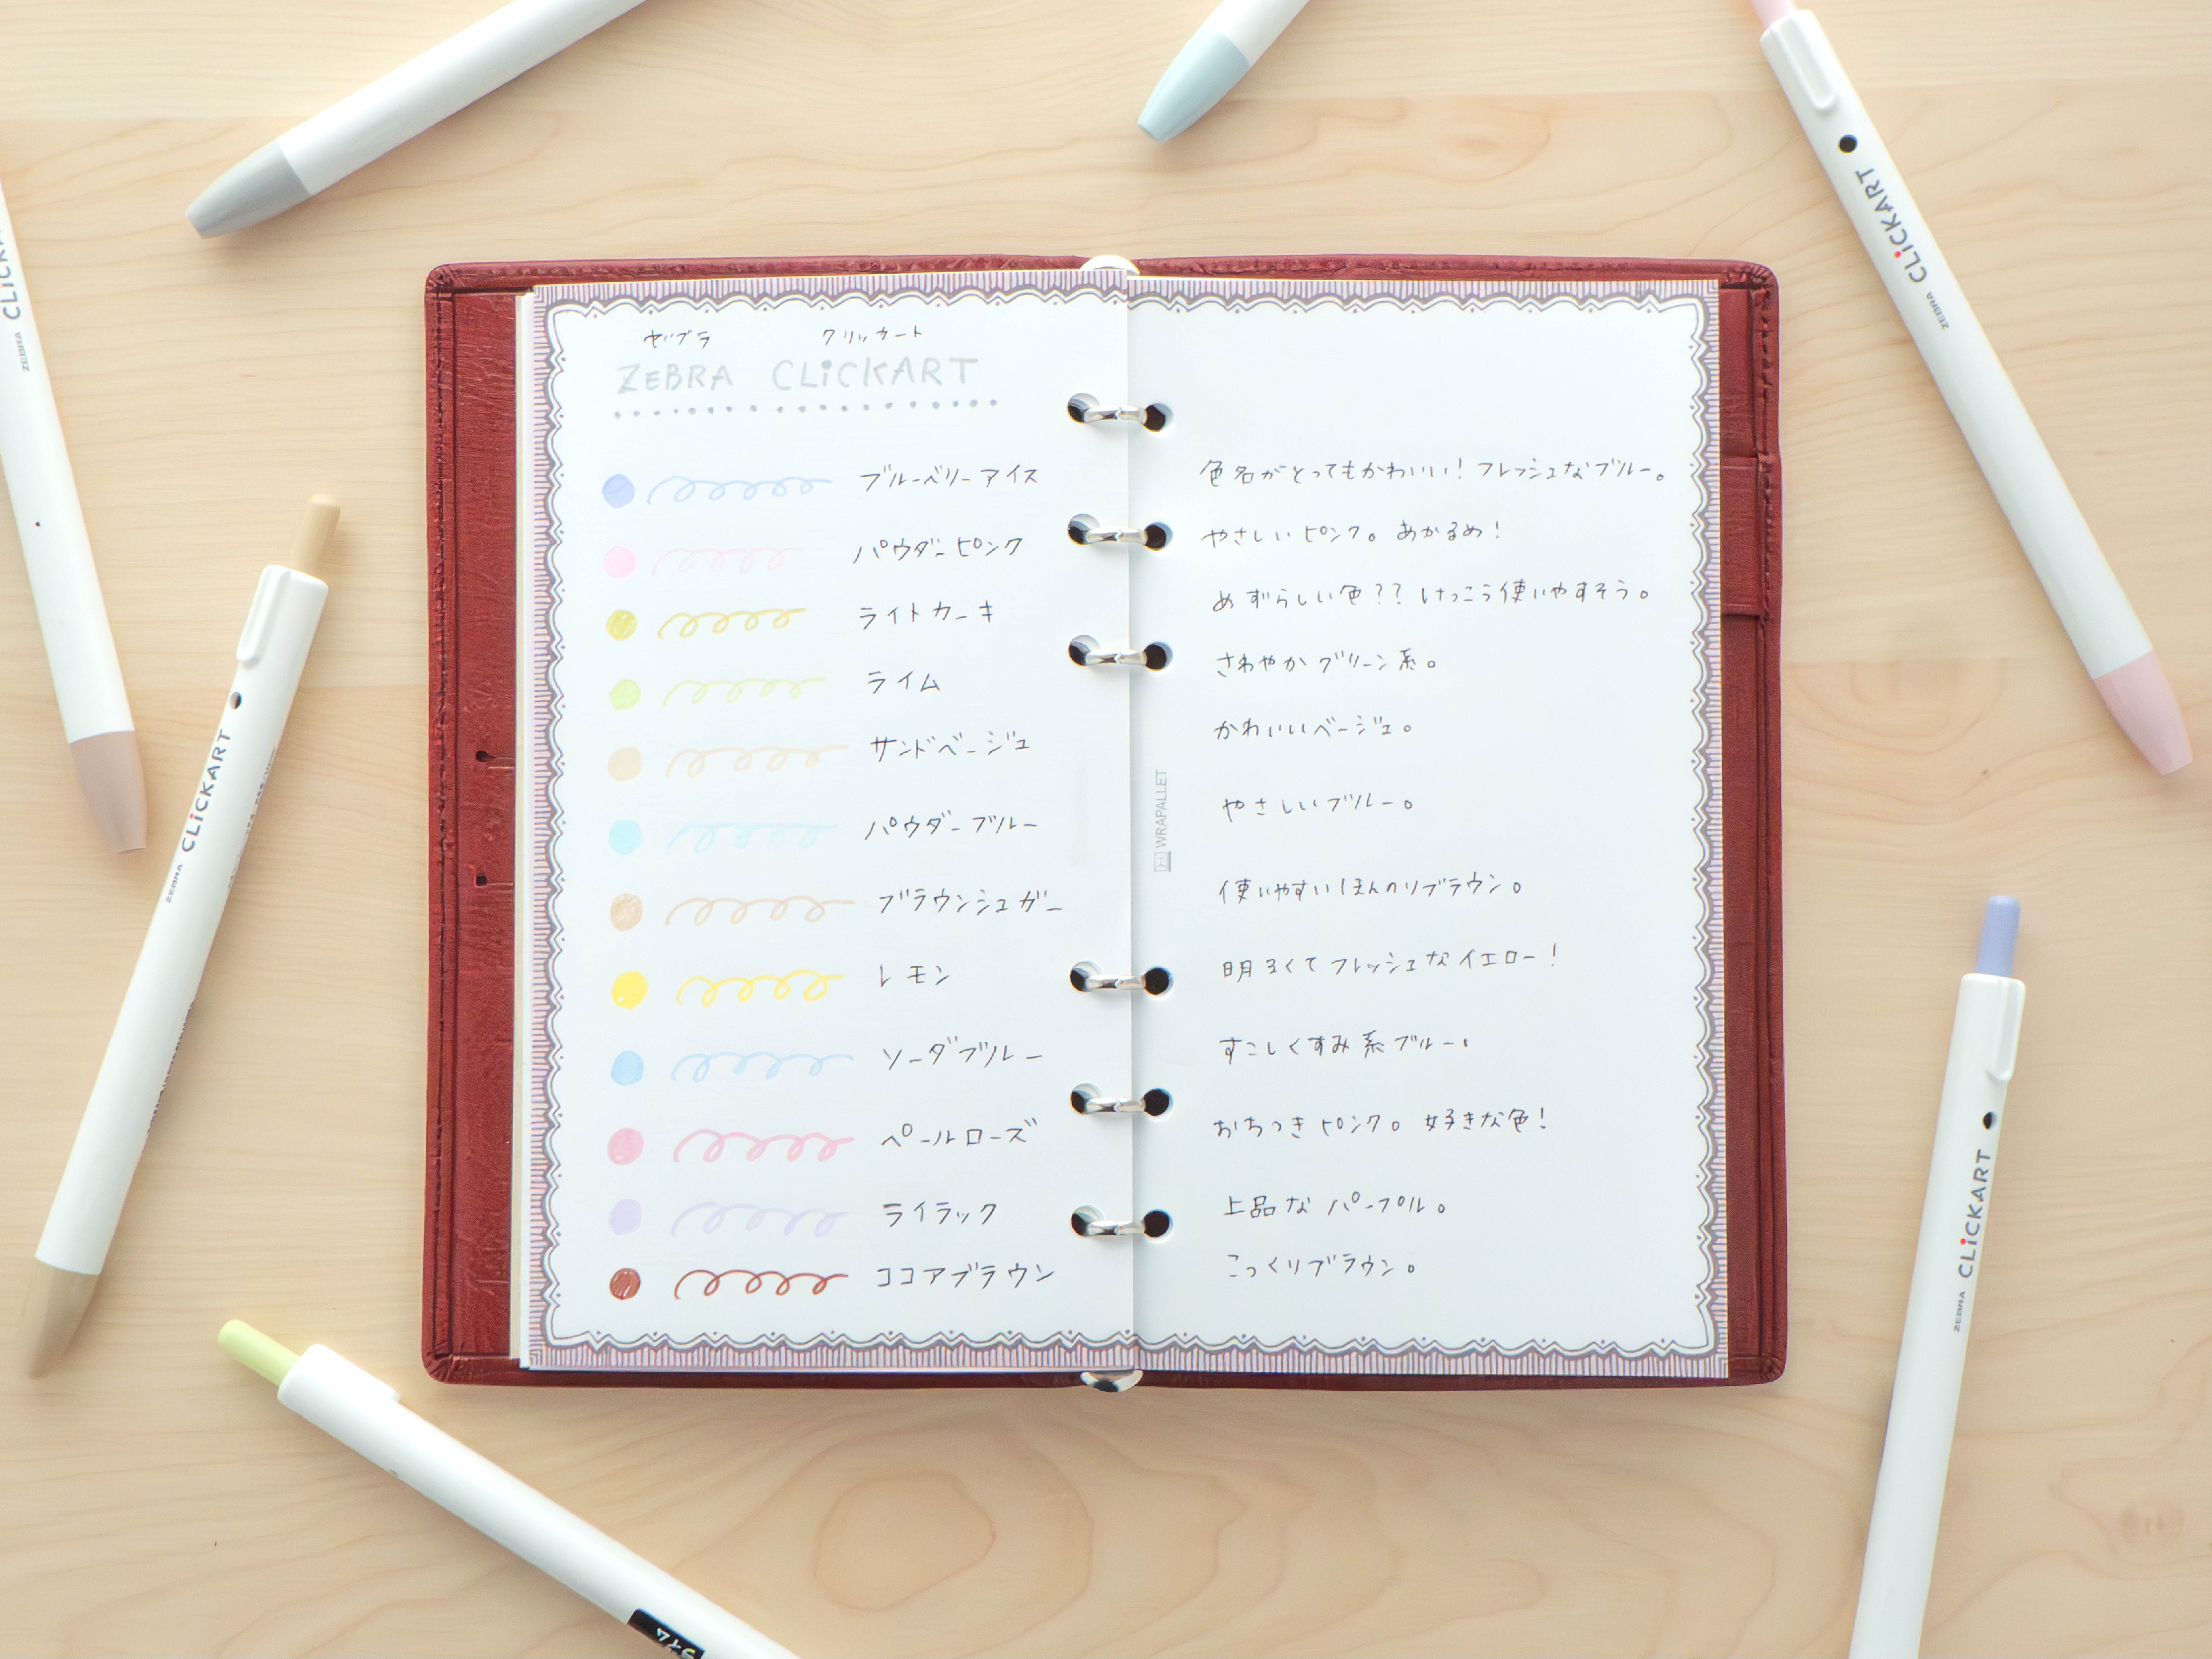 ゼブラ クリッカート
ZEBRA CLiCKART
ブルーベリーアイス 色名がとってもかわいい！フレッシュなブルー。
パウダーピンク やさしいピンク。あかるめ！
ライトカーキ めずらしい色？？けっこう使いやすそう。
ライム さわやかグリーン系。
サンドベージュ かわいいベージュ。
パウダーブルー やさしいブルー。
ブラウンシュガー 使いやすいほんのりブラウン。
レモン 明るくてフレッシュなイエロー！
ソーダブルー すこしくすみ系ブルー。
ペールローズ おちつきピンク。好きな色！
ライラック 上品なパープル。
ココアブラウン こっくりブラウン。
WRAPALLET
ZEBRA CLiCKART
ZEBRA CLiCKART
ZEBRA CLiCKART
ZEBRA CLiCK
ライム